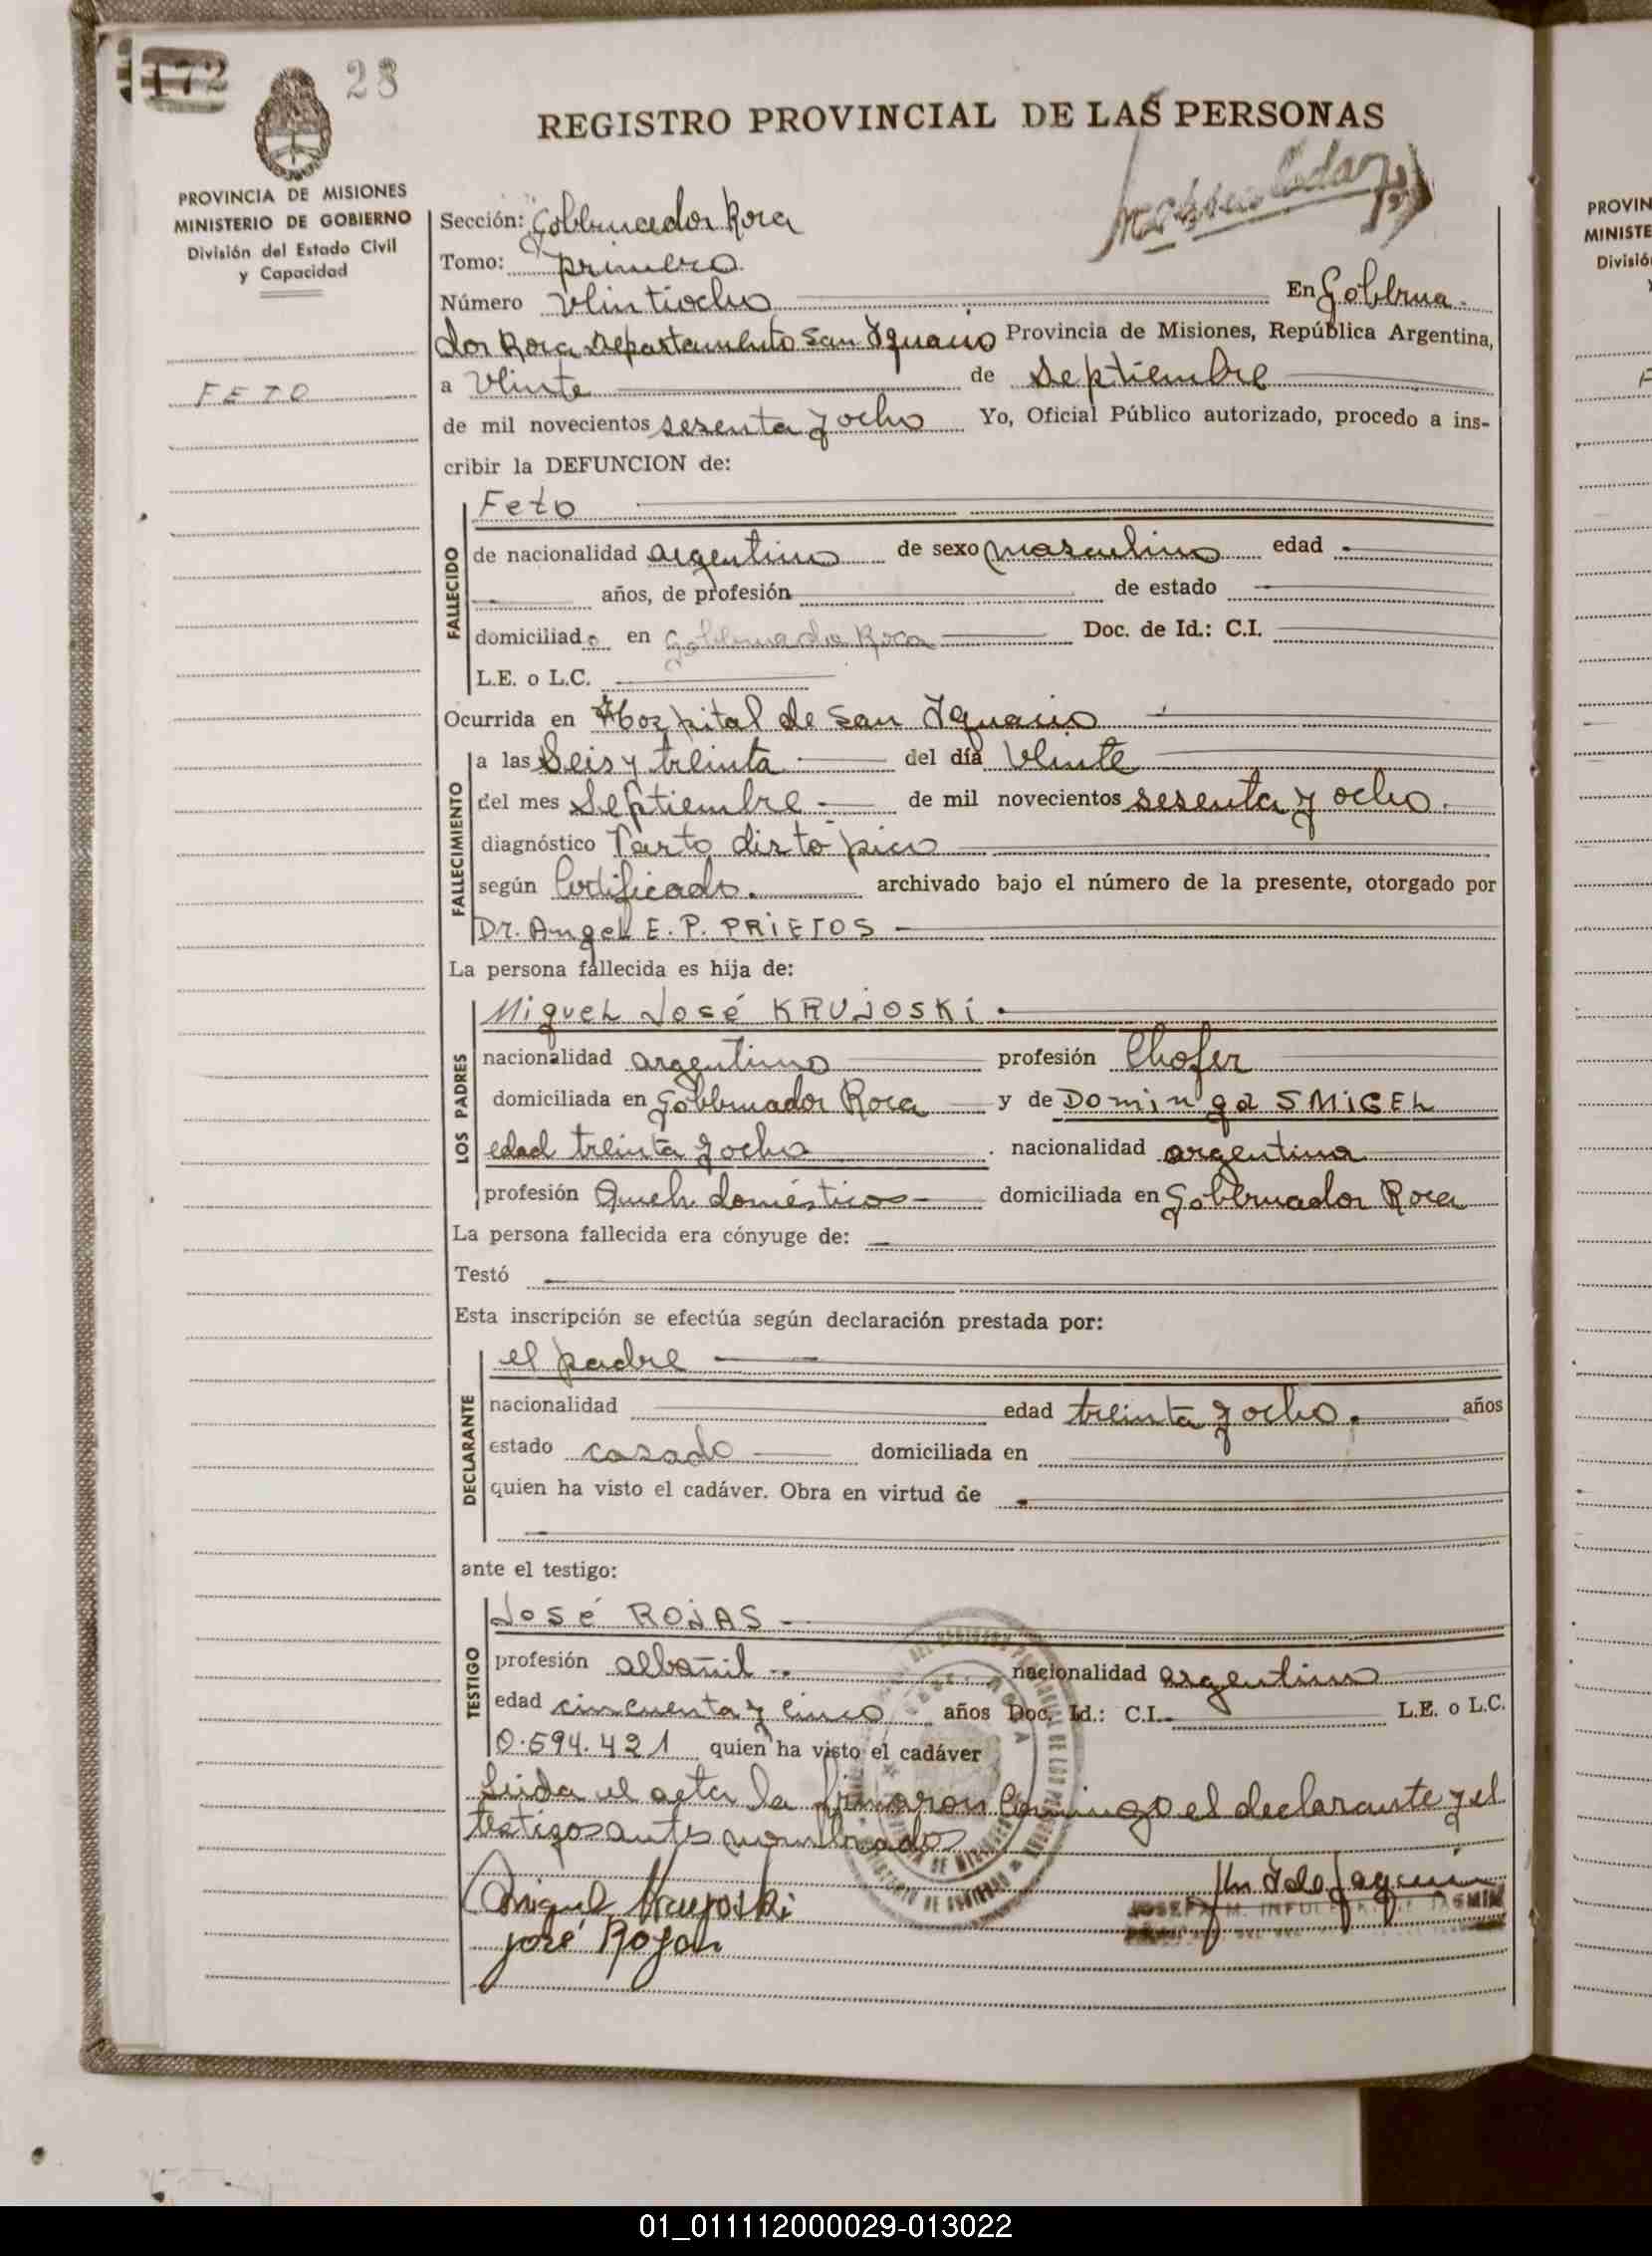 172 28
REGISTRO PROVINCIAL DE LAS PERSONAS
PROVINCIA DE MISIONES
MINISTERIO DE GOBIERNO
División del Estado Civil
y Capacidad
FETO
Sección: Gobernador Roca
Tomo: primero
Número veintiocho En Goberna-
dor Roca Departamento San Ignacio Provincia de Misiones, República Argentina,
a veinte de Septiembre
de mil novecientos sesenta y ocho Yo, Oficial Público autorizado, procedo a ins-
cribir la DEFUNCION de:
FALLECIDO
Feto
de nacionalidad argentino de sexo masculino edad
años, de profesión de estado
domiciliado en Gobernador Roca Doc. de Id.: C.I.
L.E. o L.C.
Ocurrida en Hospital de San Ignacio
FALLECIMIENTO
a las Seis y treinta del día veinte
del mes Septiembre de mil novecientos sesenta y ocho.
diagnóstico Parto distópico
según Certificado. archivado bajo el número de la presente, otorgado por
Dr. Angel E. P. PRIETOS
La persona fallecida es hija de:
LOS PADRES
Miguel José KRUJOSKI
nacionalidad argentino profesión Chofer
domiciliada en Gobernador Roca y de Dominga SMIGEL
edad treinta y ocho nacionalidad argentina
profesión Queh. domésticos domiciliada en Gobernador Roca
La persona fallecida era cónyuge de:
Testó
Esta inscripción se efectúa según declaración prestada por:
DECLARANTE
el padre
nacionalidad edad treinta y ocho. años
estado casado domiciliada en
quien ha visto el cadáver. Obra en virtud de
ante el testigo:
TESTIGO
José ROJAS
profesión albañil nacionalidad argentino
edad cincuenta y cinco años Doc. Id.: C.I. L.E. o L.C.
0.594.421 quien ha visto el cadáver
Leida el acta la firmaron conmigo el declarante y el
testigos antes nombrados
Miguel Krujoski
José Rojas
JOSEFA M.
PROVIN
MINISTE
Divisió
01_011112000029-013022